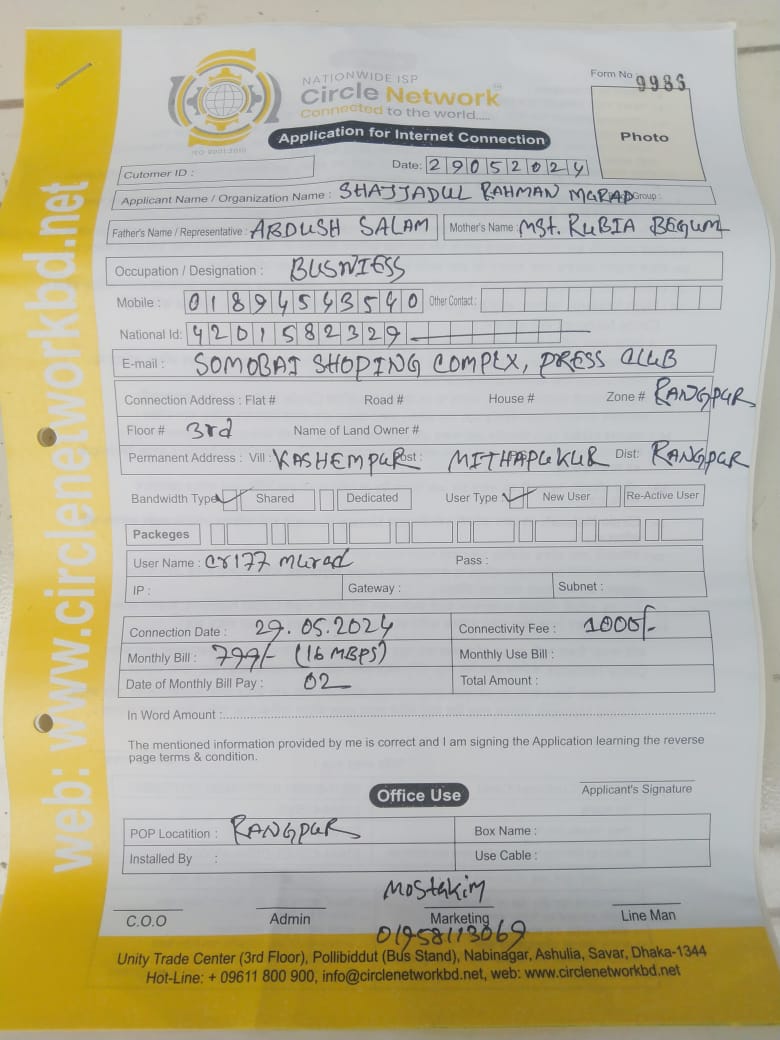 NATIONWIDE ISP
Circle Network
Connected to the world.....
ISO 9001:2015
Form No 9986
Photo
Application for Internet Connection
Cutomer ID :
Date: 29052024
Applicant Name / Organization Name : SHAJJADUL RAHMAN MURAD Group :
Father's Name / Representative : ABDUSH SALAM Mother's Name : MST. RUBIA BEGUM
Occupation / Designation : BUSNIESS
Mobile : 01894543540 Other Contact :
National Id: 4201582329
E-mail : SOMOBAI SHOPING COMPLX, PRESS CLUB
Connection Address : Flat # Road # House # Zone # RANGPUR
Floor # 3rd Name of Land Owner #
Permanent Address : Vill : KASHEMPUR Post : MITHAPUKUR Dist: RANGPUR
Bandwidth Type Shared Dedicated User Type New User Re-Active User
Packeges
User Name : cr177 murad Pass :
IP : Gateway : Subnet :
Connection Date : 29.05.2024 Connectivity Fee : 1000/-
Monthly Bill : 799/- (16 MBPS) Monthly Use Bill :
Date of Monthly Bill Pay : 02 Total Amount :
In Word Amount :
The mentioned information provided by me is correct and I am signing the Application learning the reverse
page terms & condition.
Applicant's Signature
Office Use
POP Locatition : RANGPUR Box Name :
Installed By : Use Cable :
Mostakim
C.O.O Admin Marketing Line Man
01958113069
Unity Trade Center (3rd Floor), Pollibiddut (Bus Stand), Nabinagar, Ashulia, Savar, Dhaka-1344
Hot-Line: + 09611 800 900, info@circlenetworkbd.net, web: www.circlenetworkbd.net
web: www.circlenetworkbd.net